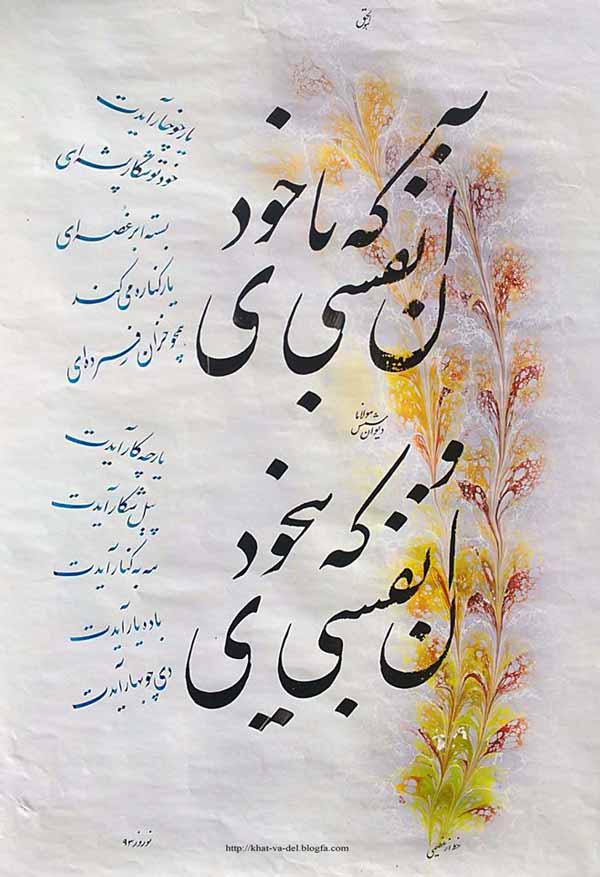 آن نفسی که با خودی
یار چو خار آیدت
خود تو شکار پشه‌ای
بسته ابر غصه‌ای
یار کناره می‌کند
همچو خزان فسرده‌ای
مولانا
دیوان شمس
وان نفسی که بیخودی
یار چه کار آیدت
پیل شکار آیدت
مه به کنار آیدت
باده یار آیدت
دی چو بهار آیدت
نوروز ۹۳
http://khat-va-del.blogfa.com